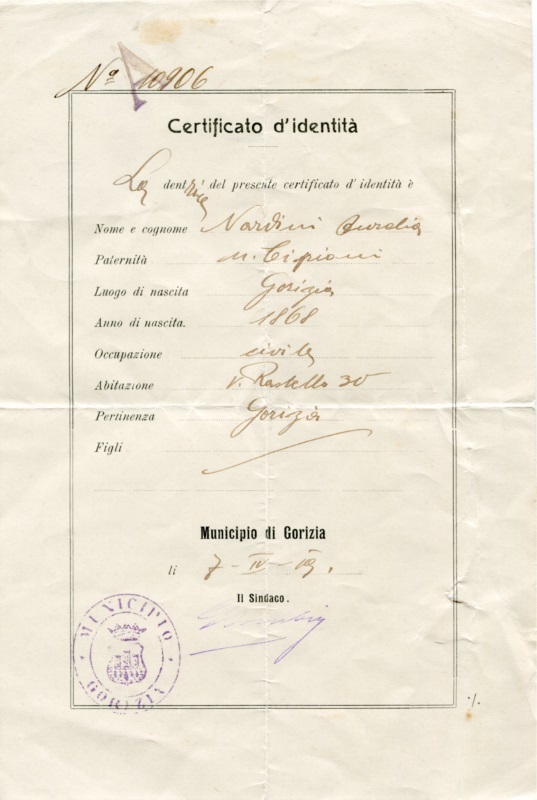 Nº 10906
Certificato d'identità
La dentrice del presente certificato d'identità è
Nome e cognome Nardini Aurelia
Paternità n. Cipriani
Luogo di nascita Gorizia
Anno di nascita. 1868
Occupazione civile
Abitazione V. Rastello 30
Pertinenza Gorizia
Figli
Municipio di Gorizia
li 7-IV-19.
Il Sindaco.
MUNICIPIO
GORIZIA